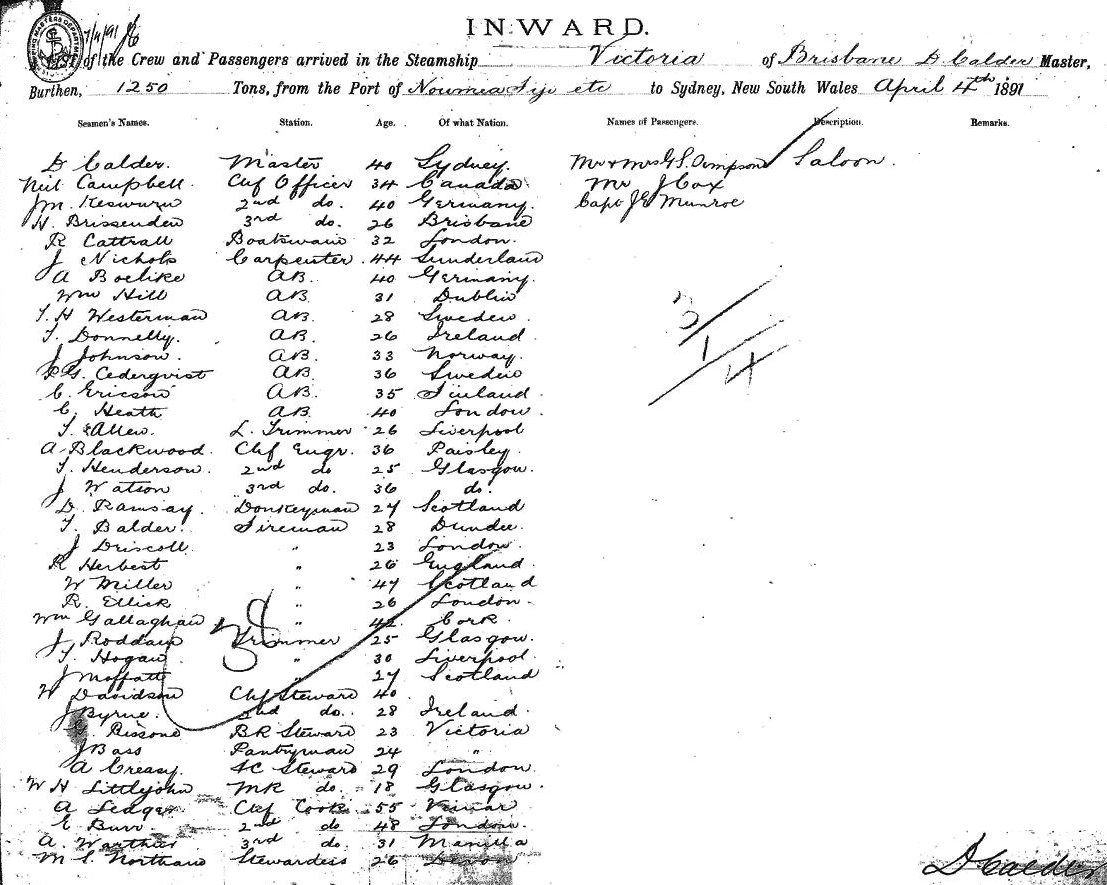 INWARD.
7/4/91
of the Crew and Passengers arrived in the Steamship Victoria of Brisbane D Calder Master,
Burthen, 1250 Tons, from the Port of Noumea Fiji etc to Sydney, New South Wales April 4th 1891
Seamen's Names. Station. Age. Of what Nation. Names of Passengers. Description. Remarks.
D Calder. Master 40 Sydney. Mr & Mrs Saloon.
Neil Campbell. Chf Officer 34 Canada Mr J Cox
J M. 2nd do. 40 Germany. Capt J E Munroe
H. Brissenden 3rd do. 26 Brisbane
R Cattrall Boatswain 32 London.
J Nichols Carpenter. 44 Sunderland
A Boelike AB. 40 Germany.
Wm Hill AB. 31 Dublin
T. H Westerman AB. 28 Sweden.
T. Donnelly. AB. 26 Ireland.
J Johnson. AB. 33 Norway.
Cederqvist AB. 36 Sweden
C. Ericson AB. 35 Finland.
C. Heath AB. 40 London.
T Allen. L. Trimmer 26 Liverpool
A. Blackwood. Chf Engr. 36 Paisley.
T. Henderson. 2nd do 25 Glasgow.
J Watson 3rd do. 36 do.
D. Ramsay. Donkeyman 27 Scotland
T. Balder. Fireman 28 Dundee.
J Driscoll. " 23 London.
R Herbert " 26 England.
W Miller " 47 Scotland
R. Ellick " 26 London.
Wm Gallaghan " 42 Cork.
J. Roddan Trimmer 25 Glasgow.
T. Hogan " 30 Liverpool.
J Moffatt " 27 Scotland
W Davidson Chf Steward 40
J Byrne. 2nd do. 28 Ireland.
Bissone BR Steward 23 Victoria
J Bass Pantryman 24 "
A Creasy. SC Steward 29 London.
W H Littlejohn MR do. 18 Glasgow.
A Ledger Chf Cook 55
E Burr. 2nd do 48 London.
A. 3rd do. 31 Manilla
M S Northam Stewardess 26 Devon
3/1/4
38
D Calder